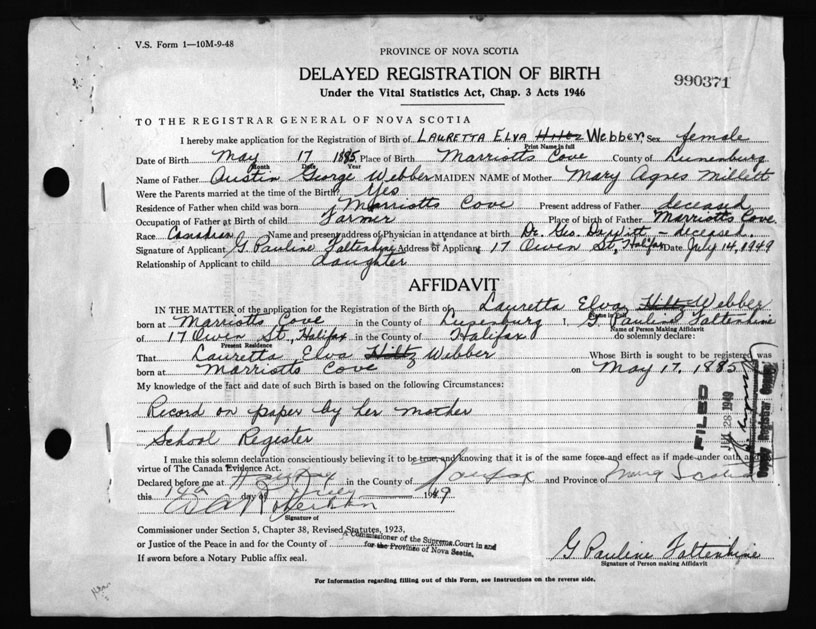 V.S. Form 1—10M-9-48
PROVINCE OF NOVA SCOTIA
DELAYED REGISTRATION OF BIRTH
990371
Under the Vital Statistics Act, Chap. 3 Acts 1946
TO THE REGISTRAR GENERAL OF NOVA SCOTIA
I hereby make application for the Registration of Birth of LAURETTA ELVA Hiltz Webber, Sex female
Print Name in full
Date of Birth May 17 1885 Place of Birth Marriotts Cove County of Lunenburg
Month Date Year
Name of Father Austin George Webber MAIDEN NAME of Mother Mary Agnes Millett
Were the Parents married at the time of the Birth? Yes
Residence of Father when child was born Marriotts Cove Present address of Father deceased
Occupation of Father at Birth of child Farmer Place of birth of Father Marriotts Cove.
Race Canadian Name and present address of Physician in attendance at birth Dr. Geo. – deceased.
Signature of Applicant G Pauline Faltenhine Address of Applicant 17 Owen St, Halifax Date July 14, 1949
Relationship of Applicant to child daughter
AFFIDAVIT
IN THE MATTER of the application for the Registration of the Birth of Lauretta Elva Hiltz Webber
born at Marriotts Cove in the County of Lunenburg I, G Pauline Faltenhine
Name of Person Making Affidavit
of 17 Owen St., Halifax in the County of Halifax do solemnly declare:
Present Residence
That Lauretta Elva Hiltz Webber Whose Birth is sought to be registered was
born at Marriotts Cove on May 17, 1885
My knowledge of the fact and date of such Birth is based on the following Circumstances:
Record on paper by her mother
School Register
FILED
1949
Deputy Registrar General
I make this solemn declaration conscientiously believing it to be true, and knowing that it is of the same force and effect as if made under oath and by
virtue of The Canada Evidence Act.
Declared before me at Halifax in the County of Halifax and Province of Nova Scotia
this 14th day of July 1949
Signature of
Commissioner under Section 5, Chapter 38, Revised Statutes, 1923,
or Justice of the Peace in and for the County of
A Commissioner of the Supreme Court in and
for the Province of Nova Scotia.
If sworn before a Notary Public affix seal.
G Pauline Faltenhine
Signature of Person making Affidavit
For Information regarding filling out of this Form, see Instructions on the reverse side.